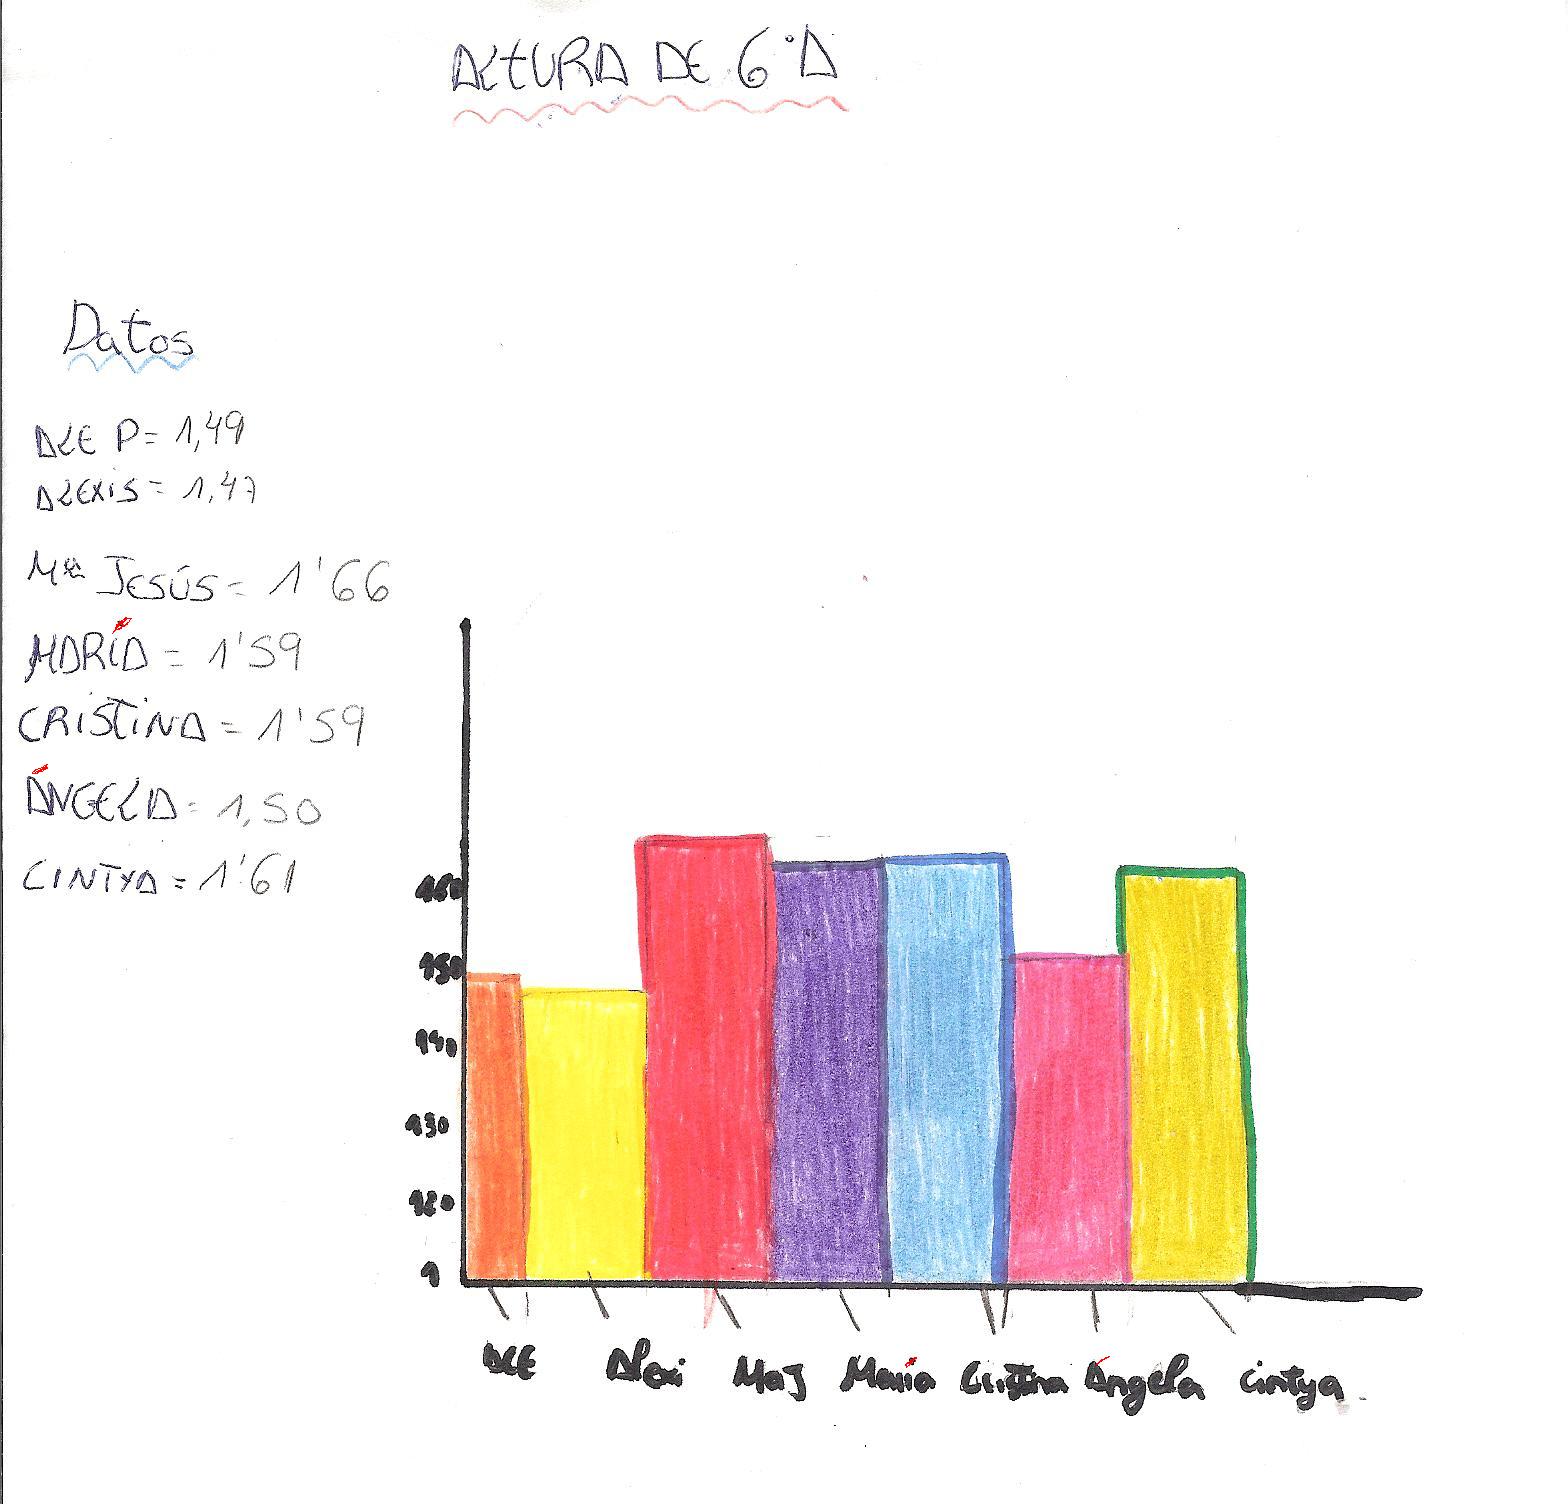 ALTURA DE 6°A
Datos
ALE P= 1,49
ALEXIS= 1,47
Mª JESÚS= 1'66
MARÍA = 1'59
CRISTINA = 1'59
ÁNGELA= 1,50
CINTYA = 1'61
160
150
140
130
120
1
ALE Alexi MaJ María Cristina Ángela Cintya